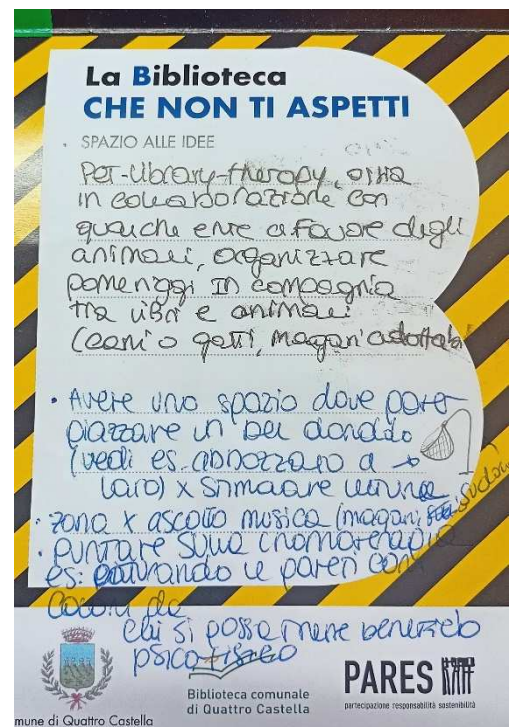 La Biblioteca
CHE NON TI ASPETTI
SPAZIO ALLE IDEE
Pet-library-therapy, ossia
in collaborazione con
qualche ente a favore degli
animali, organizzare
pomeriggi in compagnia
tra libri e animali
(cani o gatti, magari adottabili
• Avere uno spazio dove poter
piazzare un bel dondolo
(vedi es. abbozzato a →
lato) x stimolare
• zona x ascolto musica (magari
• puntare sulla cromoterapia
es: pitturando le pareti con
da
cui si possa trarre beneficio
psico-fisico
Biblioteca comunale
di Quattro Castella
PARES
partecipazione responsabilità sostenibilità
mune di Quattro Castella